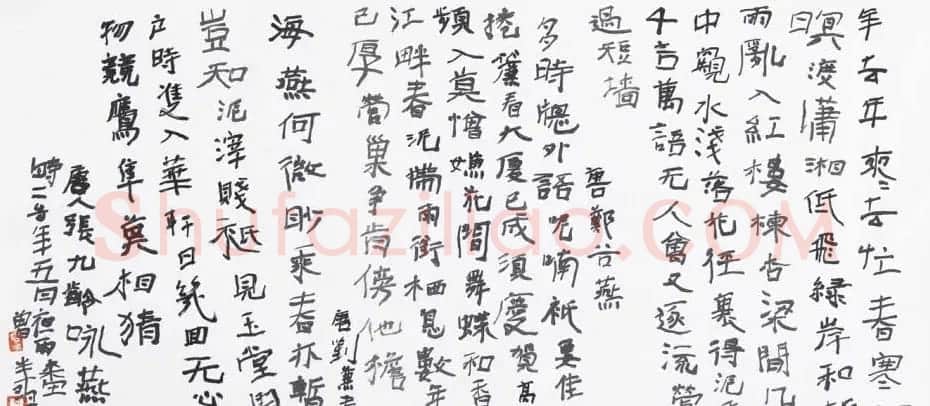 年去年來〻去忙春寒
暝渡瀟湘低飛緑岸和
雨亂入紅樓楝杏梁間几
中窺水淺落花徑裏得泥
千言萬語无人會又逐流鶯
過短墻
唐鄭谷燕
多時窗外語呢喃衹要佳
捲簾看大厦已成須慶賀高
頻入莫憎嫌花間舞蝶和香
江畔春泥带雨銜栖息數年
已厚營巢爭肯傍他檐
唐劉兼
海燕何微眇乘春亦暫
豈知泥滓賤衹見玉堂開
户時雙入華軒日幾回无心
物競鷹隼莫相猜
唐人張九齡咏燕
年五月夜雨
曾
Shufaziliao.COM